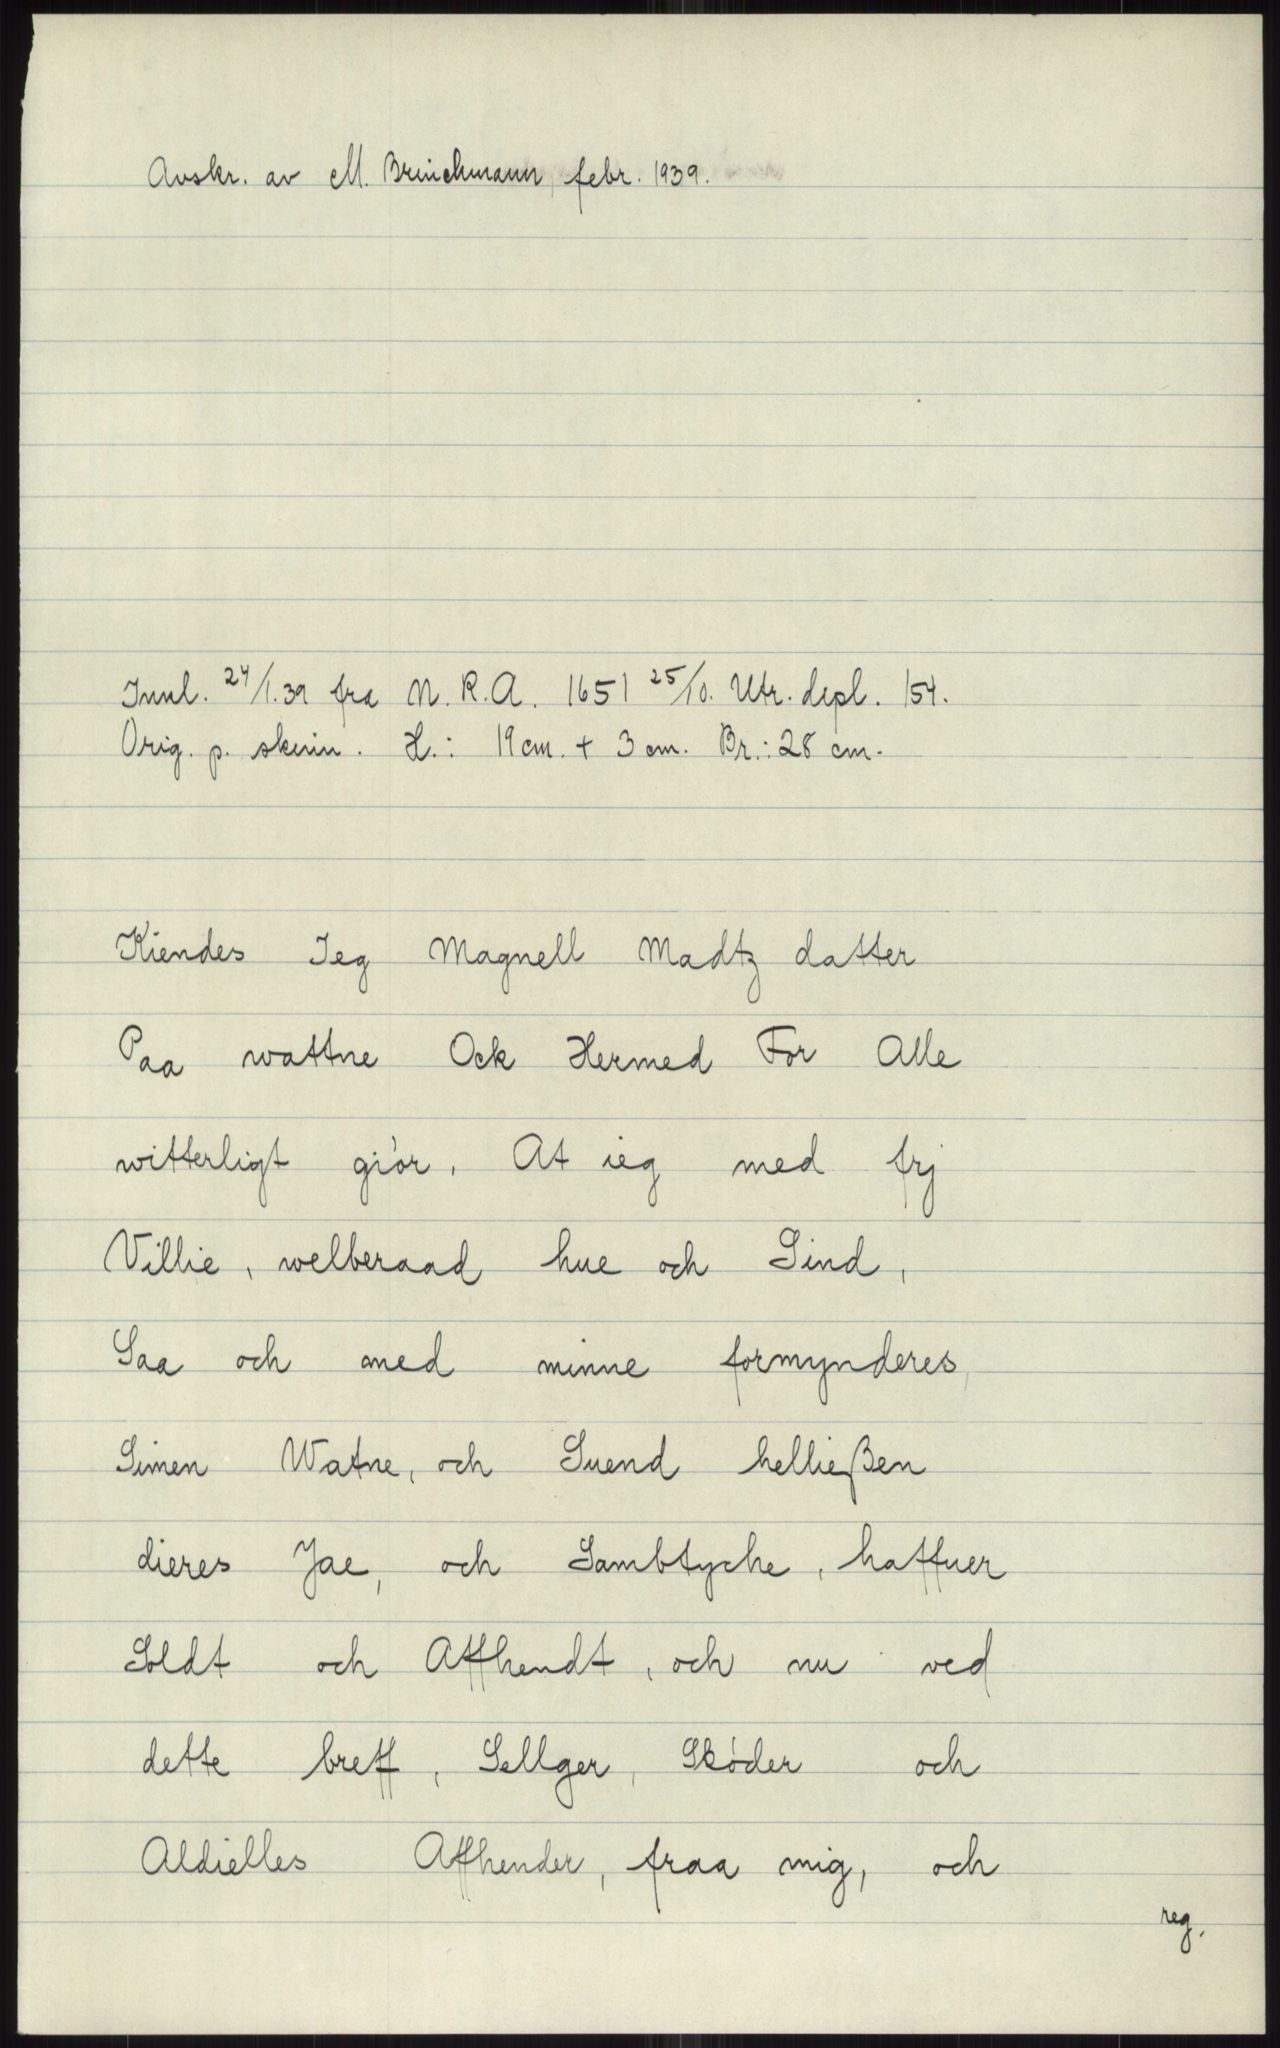 Avskr. av M. Brinchmann, febr. 1939.
Innl. 24/1.39 fra N. R. A. 1651 25/10. Utr. depl. 154.
Orig. p. skinn. H.: 19 cm. + 3 cm. Br.: 28 cm.
Kiendes Jeg Magnell Madtz datter
Paa wattne Ock Hermed For Alle
witterligt giör, At ieg med frj
Villie, welberaad hue och Sind,
Saa och med minne formynderes,
Simen Watne, och Suend helließen
dieres Jae, och Sambtyche, haffuer
Soldt och Affhendt, och nu ved
dette breff, Sellger, Skóder och
Aldielles Affhender, fraa mig, och
reg.